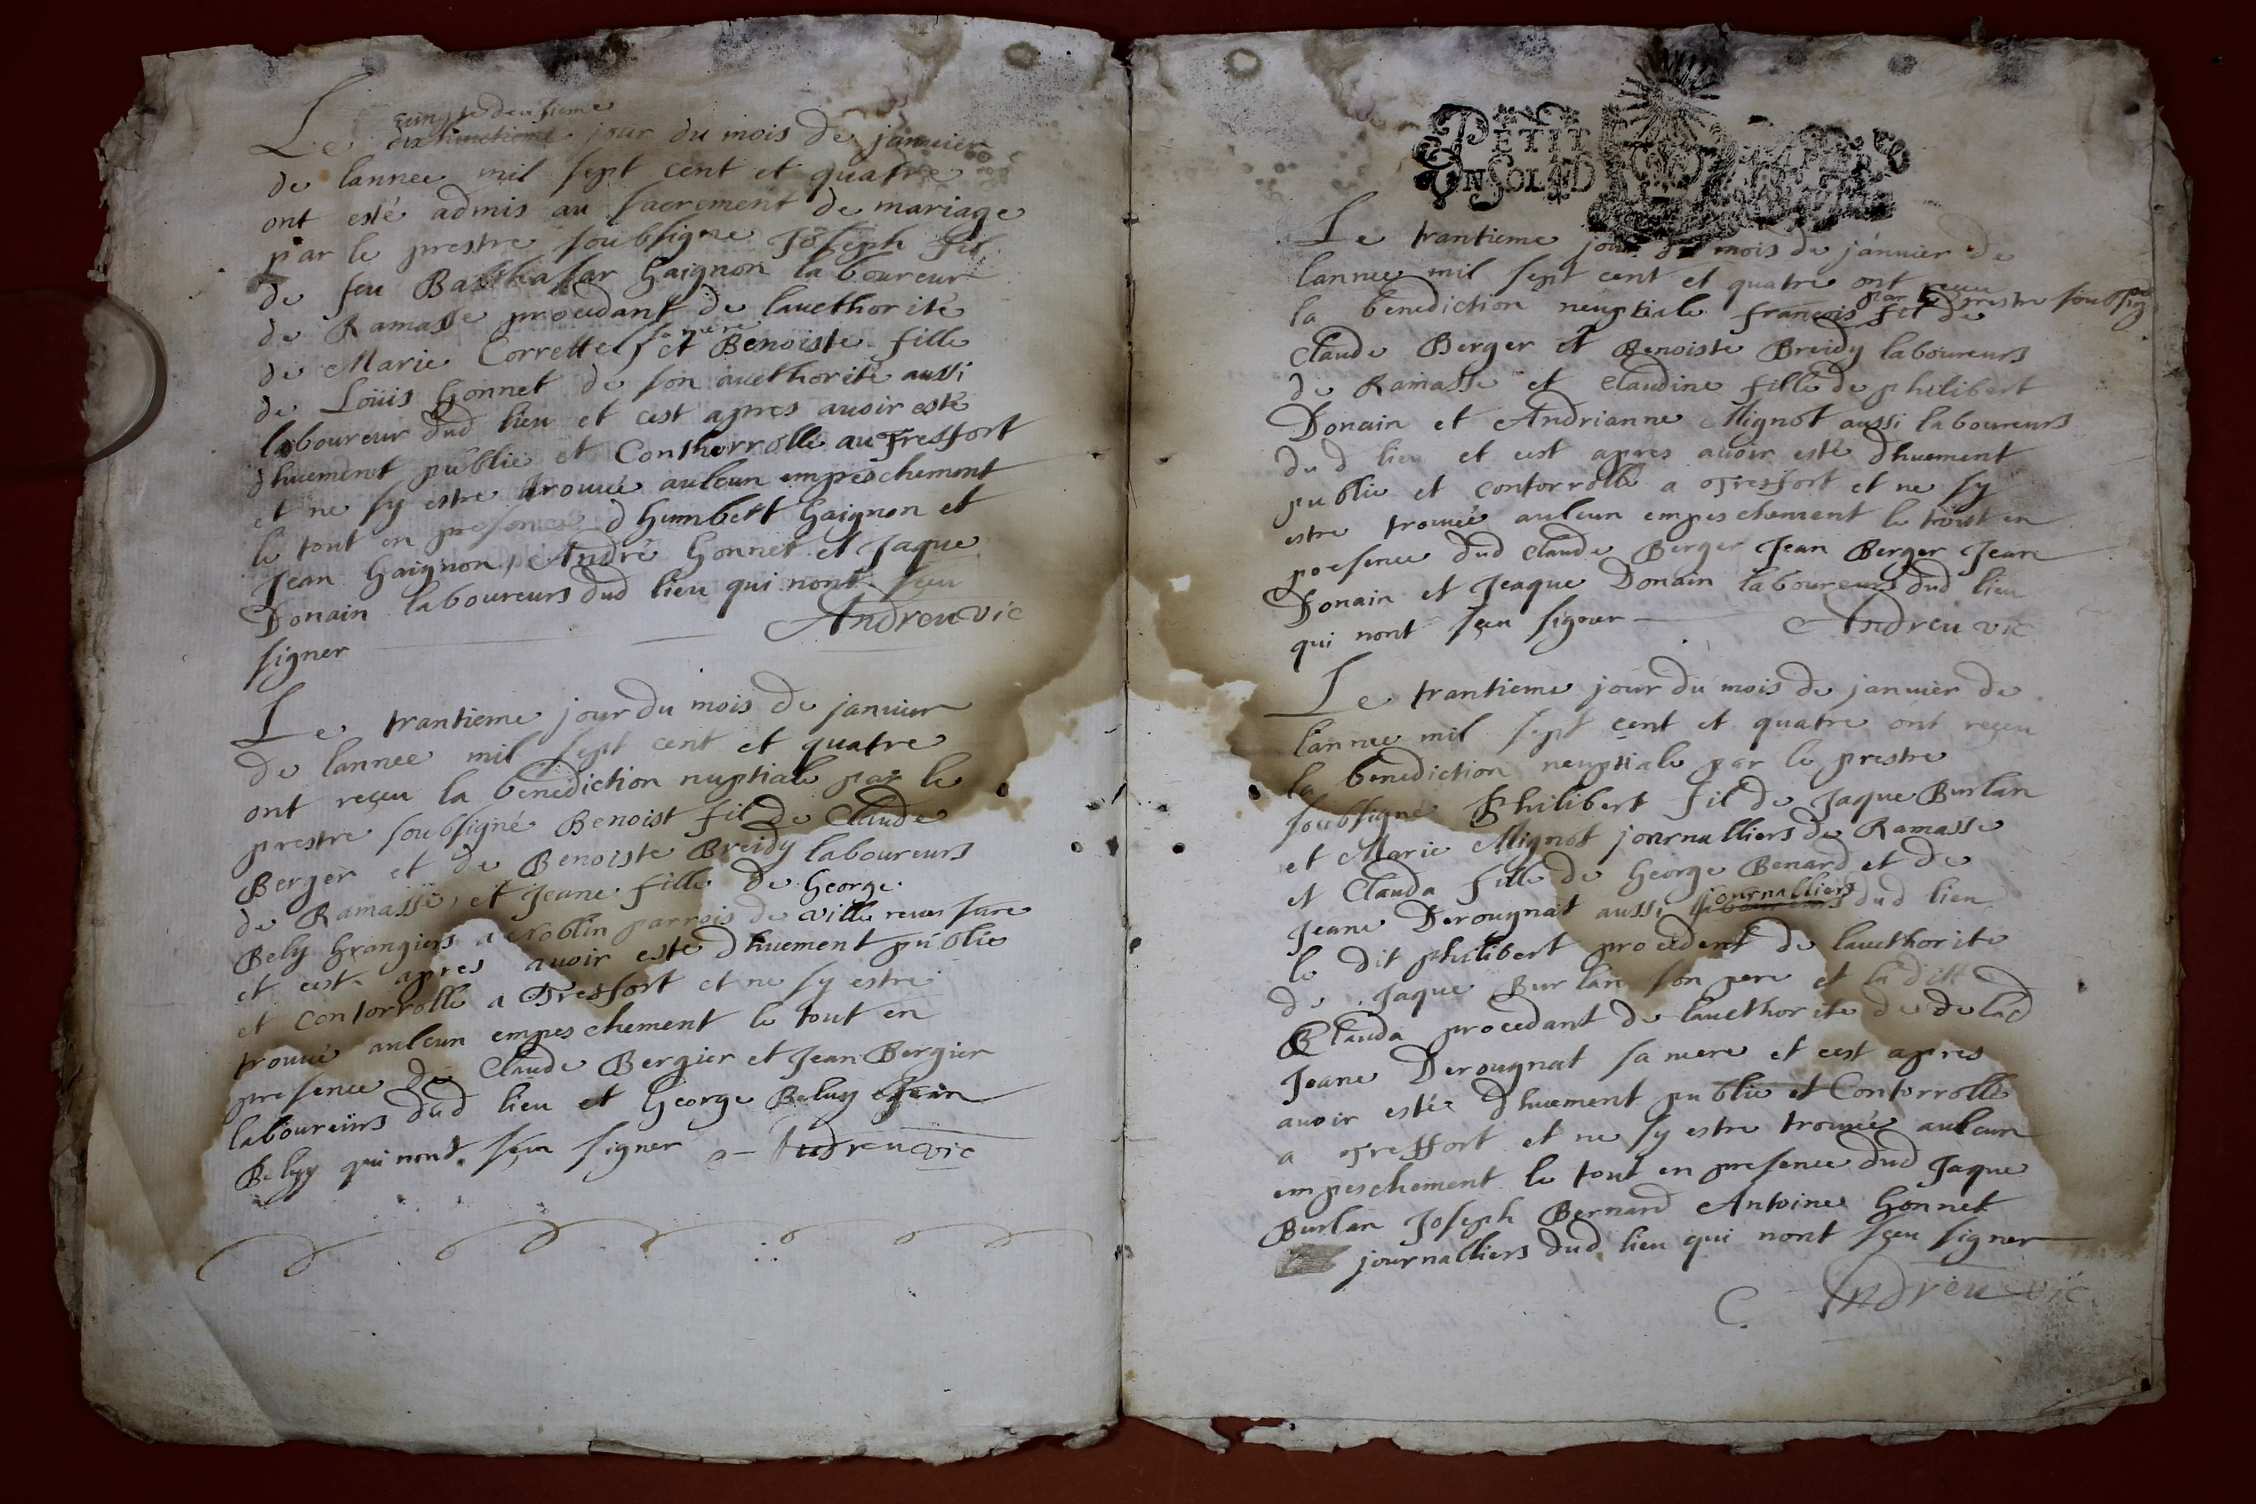 vingt deusieme
Le dix neuctieme jour du mois de januier
de lannee mil sept cent et quatre
ont esté admis au sacrement de mariage
par le prestre soubsigne Joseph fil
de feu Balthasar Gaignon laboureur
de Ramasse procedant de laucthorité
de Marie Corrette sa mere et Benoiste fille
de Loüis Gonnet de son aucthorité aussi
laboureur dud lieu et cest apres auoir esté
dhuement publie et Conthorrolle au Tresfort
et ne sy estre trouué auleun empeschement
le tout en presence dhumbert Gaignon et
Jean Gaignon, André Gonnet et Jaque
Donain laboureurs dud lieu qui nont sçeu
signer Andreu vic
Le trantieme jour du mois de januier
de lannee mil sept cent et quatre
ont reçeu la benediction nuptiale par le
prestre soubsigné Benoist fil de Claude
Berger et de Benoiste Breidy laboureurs
de Ramasse, et Jeane fille de George
Bely Grangiers a roblin parrois de ville reuersure
et cest apres auoir esté dhuement publie
et contorrolle a Tresfort et ne sy estre
trouué auleun empeschement le tout en
presence de Claude Bergier et Jean Bergier
laboureurs dud lieu et George Beluy Jean
Belyy qui nont sçeu signer Andreu vic
PETIT PAPIER
UN SOL LD
Le trantieme jour du mois de januier de
lannee mil sept cent et quatre ont reçeu
par le prestre soubsigné
la benediction neuptiale francois fil de
Claude Berger et Benoiste Breidy laboureurs
de Ramasse et Claudine fille de philibert
Donain et Andrianne Mignot aussi laboureurs
dud lieu et cest apres auoir esté dhuement
publie et contorrollé a Tresfort et ne sy
estre trouuée auleun empeschement le tout en
presence dud Claude Berger Jean Berger Jean
Donain et Jeaque Donain laboureurs dud lieu
qui nont sçeu signer Andreu vic
Le trantieme jour du mois de januier de
lannee mil sept cent et quatre ont reçeu
la benediction neuptiale par le prestre
soubsigne Philibert fil de Jaque Burlan
et Marie Mignot journalliers de Ramasse
et Clauda fille de George Benard et de
Jeane Derougnat aussi laboureurs journalliers dud lieu
le dit philibert procedent de laucthorite
de Jaque Burlan son pere et la ditt
Clauda procedant de laucthorite de de lad
Jeane Derougnat sa mere et cest apres
auoir estée dhuement publie et Contorrolle
a Treffort et ne sy estre trouuée auleun
empeschement le tout en presence dud Jaque
Burlan Joseph Bernard Antoine Gonnet
journalliers dud lieu qui nont sçeu signer
Andreu vic